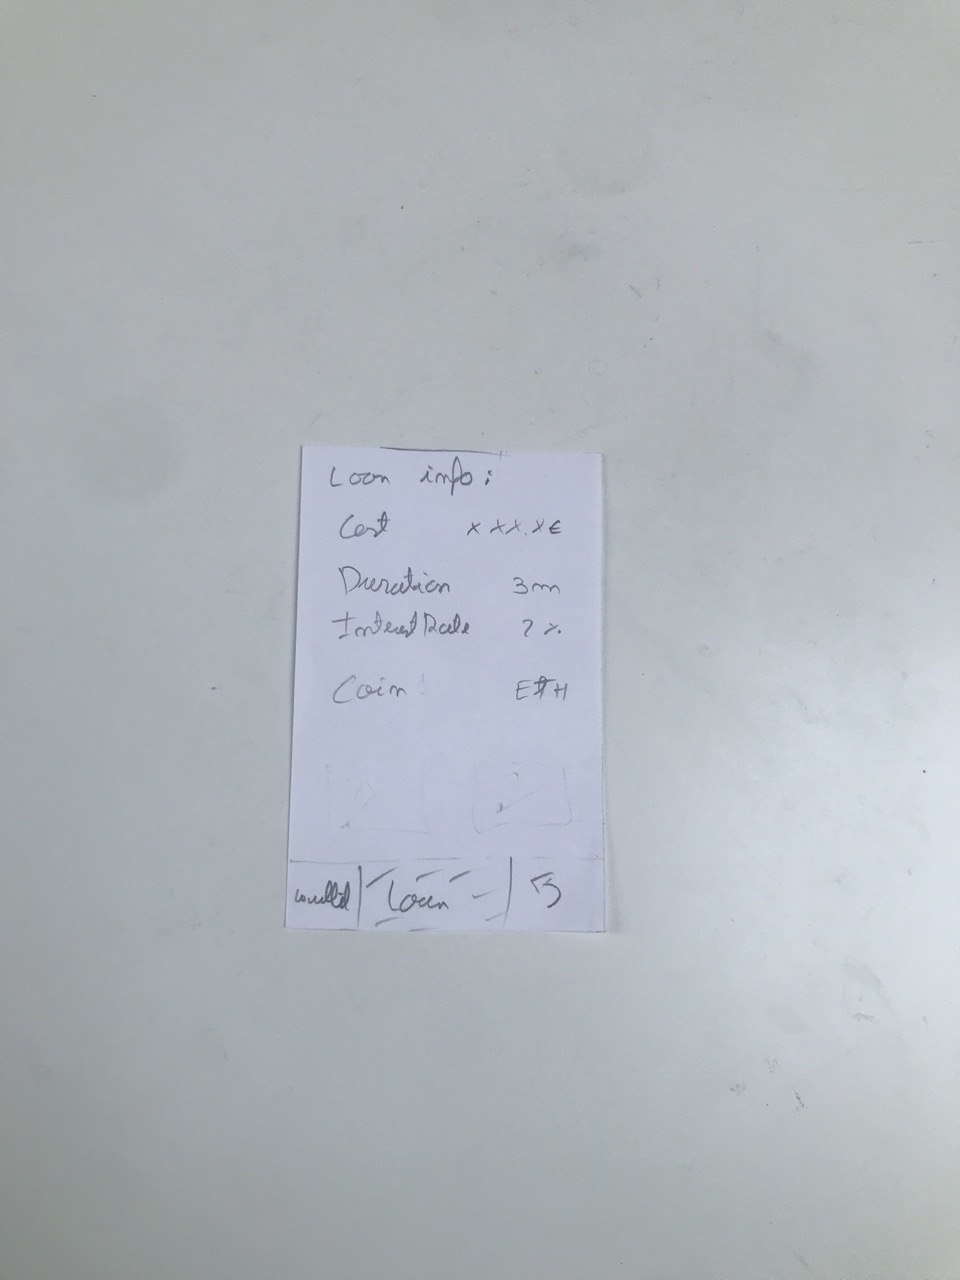 Loan info:
Cost xxx.x€
Duration 3m
Interest Rate ? %
Coin ETH
Loan